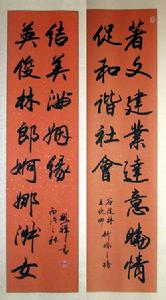 著文建業達意暢情
促和諧社會
英俊林郎婀娜淑女
結美滿姻緣